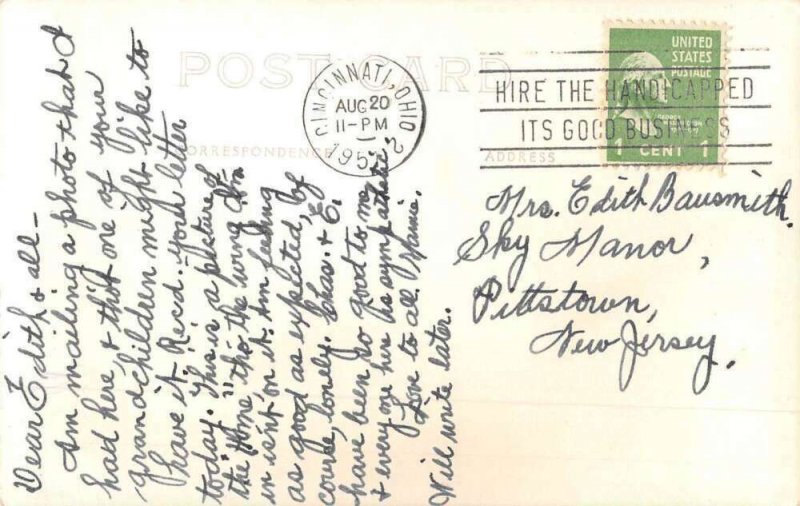 POST CARD
CORRESPONDENCE
ADDRESS
CINCINNATI, OHIO
AUG 20
11-PM
1952
HIRE THE HANDICAPPED
ITS GOOD BUSINESS
UNITED
STATES
POSTAGE
1 CENT 1
Dear Edith & all -
Am mailing a photo that I
had here & that one of your
grandchildren might like to
have it. Recd. your letter
today. This is a picture of
the "Home" tho the wing I'm
in isn't on it. Am feeling
as good as expected, of
course, lonely. Chas. & E.
have been so good to me
& everyone here is sympathetic.
Love to all.
Will write later.
Mrs. Edith Bausmith.
Sky Manor,
Pittstown,
New Jersey.